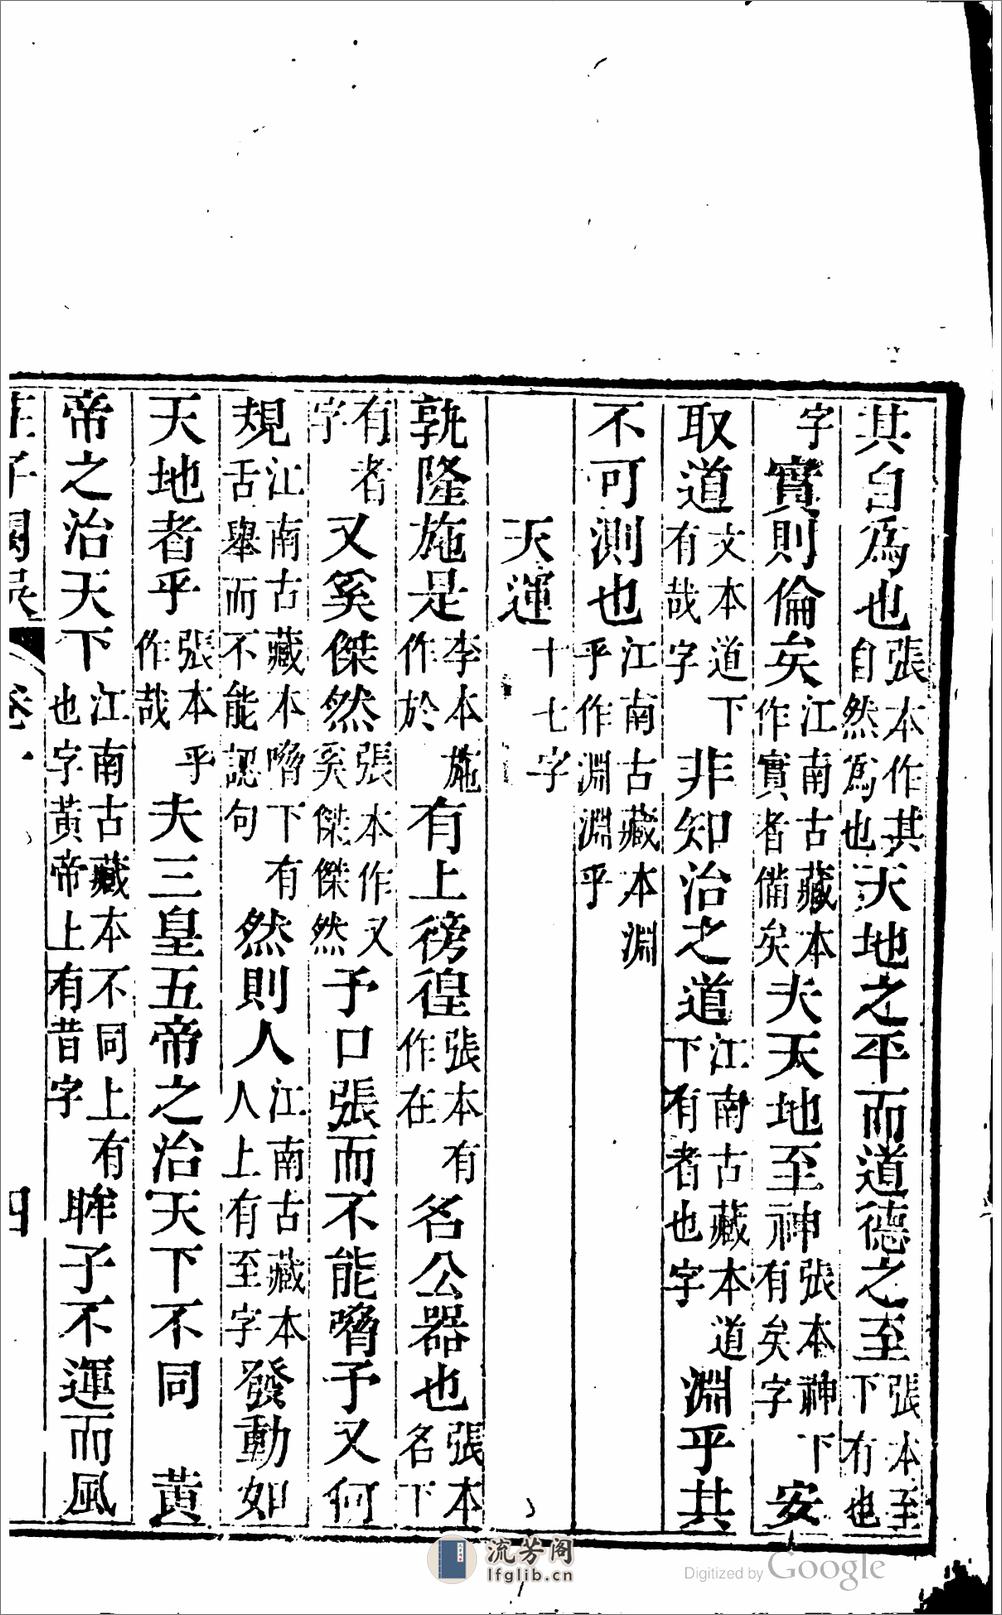 其自爲也張本作其自然爲也天地之平而道德之至張本至下有也
字實則倫矣江南古藏本作實者備矣夫天地至神張本神下有矣字安
取道文本道下有哉字非知治之道江南古藏本道下有者也字淵乎其
不可測也江南古藏本淵乎作淵淵乎
天運十七字
孰隆施是李本施作於有上徬徨張本有作在名公器也張本名下
有者字又奚傑然張本作又奚傑傑然予口張而不能嗋予又何
規江南古藏本嗋下有舌舉而不能認句然則人江南古藏本人上有至字發動如
天地者乎張本乎作哉夫三皇五帝之治天下不同 黃
帝之治天下江南古藏本不同上有也字黃帝上有昔字眸子不運而風
莊子闕誤 卷一 四
流芳阁
lfglib.cn
Digitized by Google